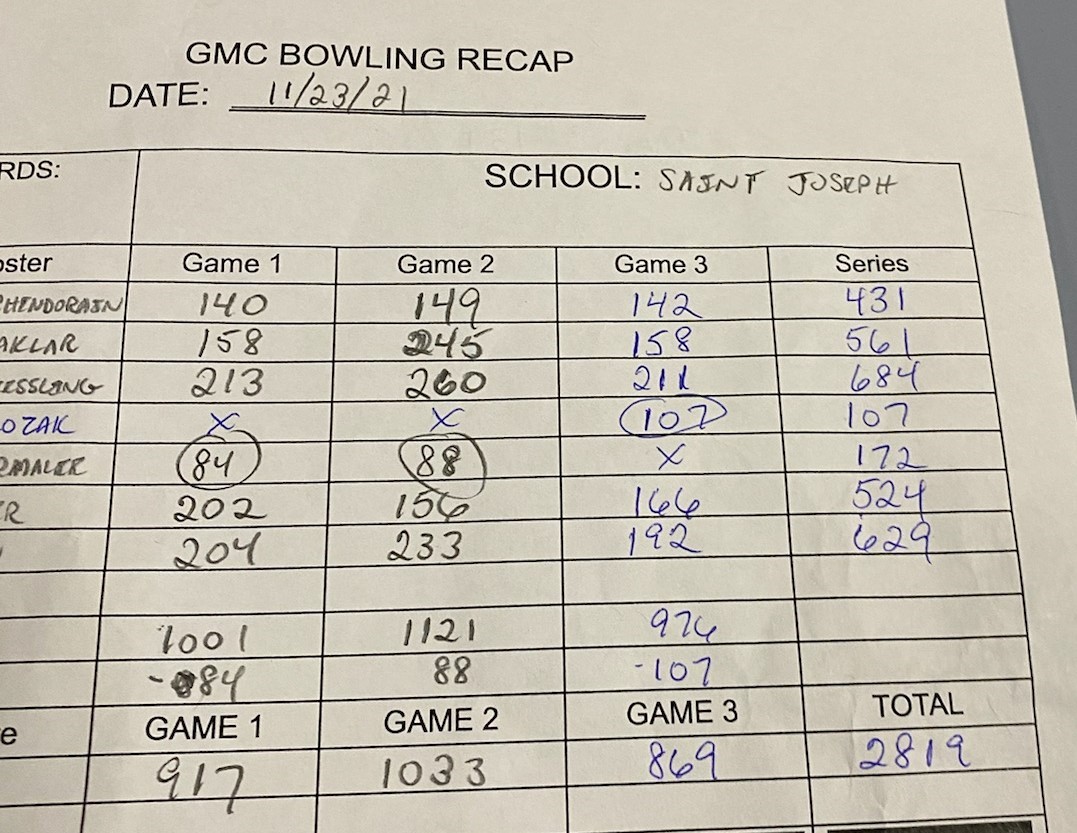 GMC BOWLING RECAP
DATE: 11/23/21
RDS: SCHOOL: SAINT JOSEPH
oster Game 1 Game 2 Game 3 Series
HENDORAIN 140 149 142 431
AKLAR 158 245 158 561
ESSLING 213 260 211 684
OZAK X X 107 107
MALER 84 88 X 172
R 202 156 166 524
204 233 192 629
1001 1121 976
-84 88 -107
e GAME 1 GAME 2 GAME 3 TOTAL
917 1033 869 2819